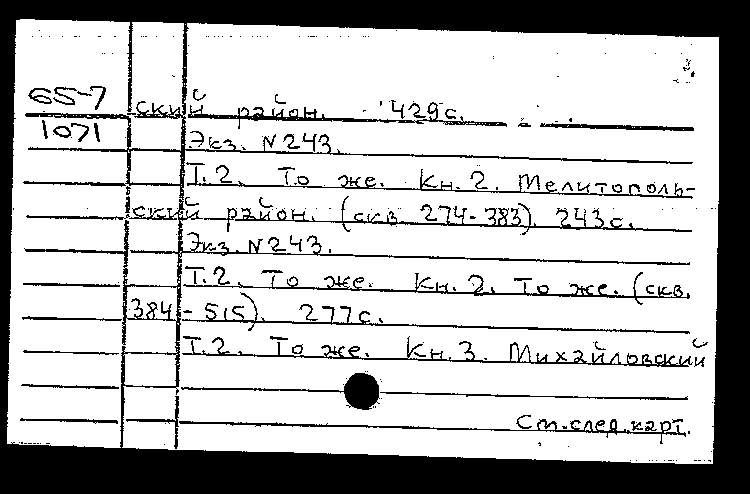 65-7
1071
ский район. 429с.
Экз. N243.
Т.2. То же. Кн.2. Мелитополь-
ский район. (скв. 274-383). 243с.
Экз. N243.
Т.2. То же. Кн.2. То же. (скв.
384-515). 277с.
Т.2. То же. Кн.3. Михайловский
См.след.карт.